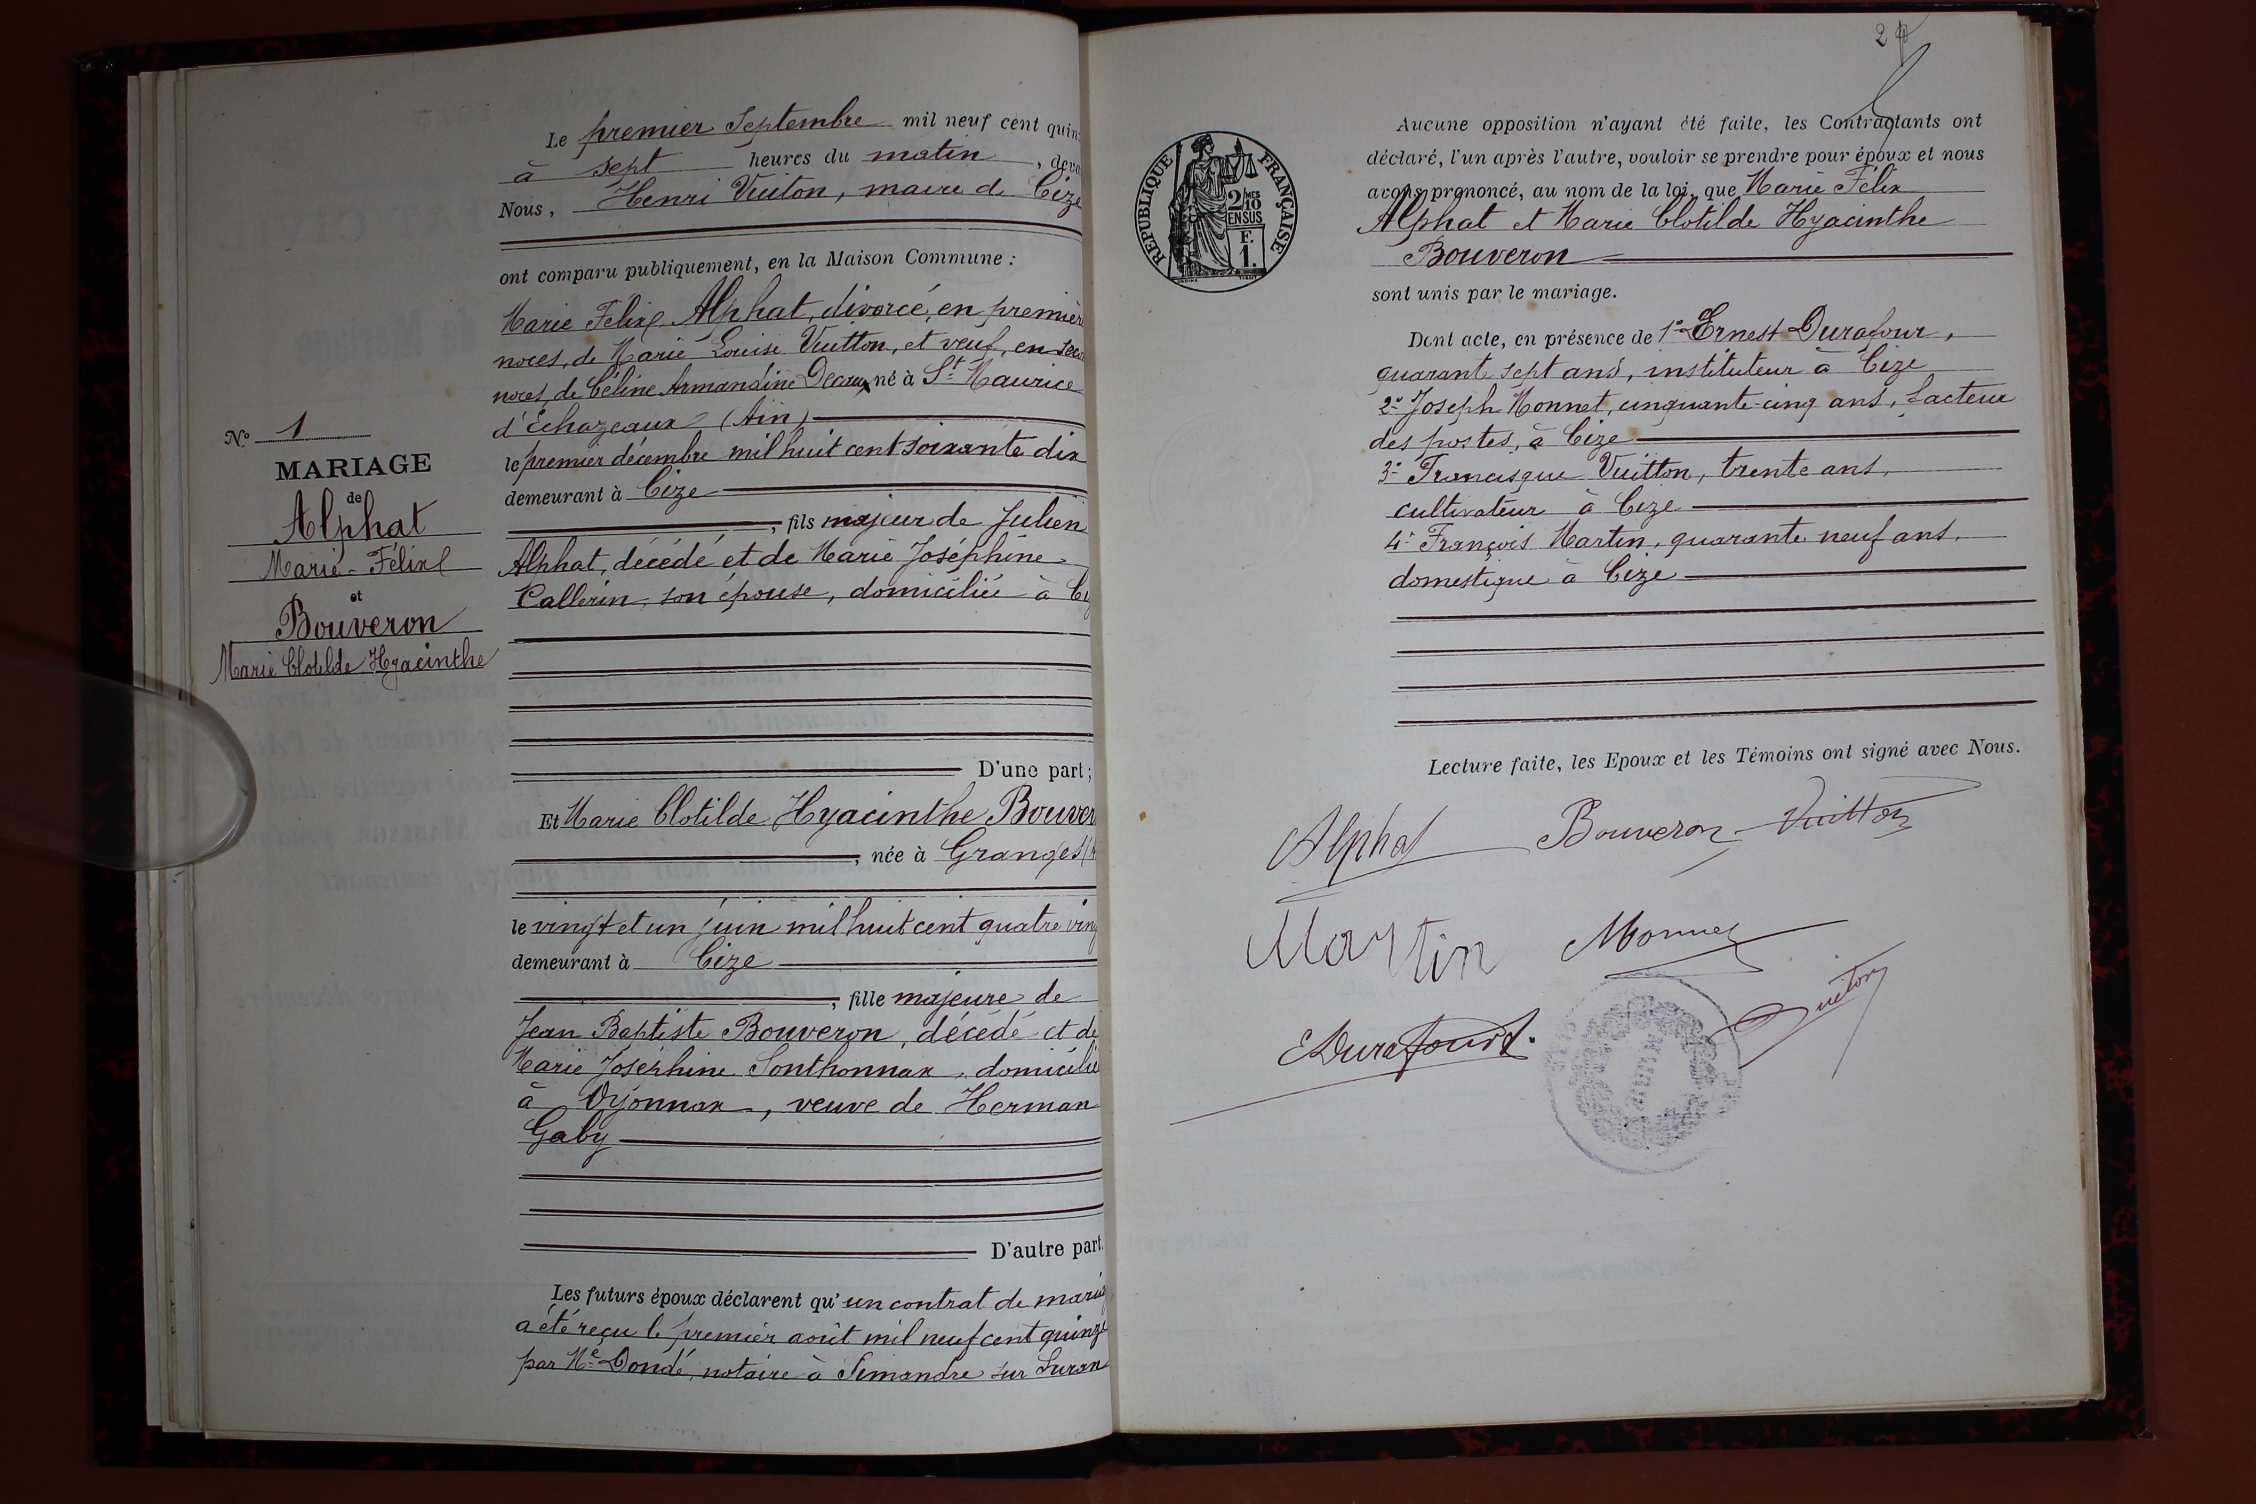 Le premier Septembre mil neuf cent quin
à sept heures du matin, deva
Nous, Henri Vuiton, maire de Cize
ont comparu publiquement, en la Maison Commune :
Marie Félix Alphat, divorcé, en première
noces, de Marie Louise Vuitton, et veuf, en seco
noces, de Céline Armandine né à St Maurice
d'Echazeaux (Ain)
le premier décembre mil huit cent soixante dix
demeurant à Cize
, fils majeur de Julien
Alphat, décédé et de Marie Joséphine
Callerin, son épouse, domiciliée à
D'une part ;
Et Marie Clotilde Hyacinthe Bouver
, née à Granges
le vingt et un juin mil huit cent quatre ving
demeurant à Cize
, fille majeure de
Jean Baptiste Bouveron, décédé et de
Marie Joséphine Sonthonnax, domicilié
à Oyonnax, veuve de Herman
Gaby
D'autre part.
Les futurs époux déclarent qu'un contrat de mariag
a été reçu le premier août mil neuf cent quinze
par Me Dondé, notaire à Simandre sur Suran
No 1
MARIAGE
de
Alphat
Marie-Félix
et
Bouveron
Marie Clotilde Hyacinthe
2
RÉPUBLIQUE FRANÇAISE
2/10
MES
EN SUS
F.
1.
Aucune opposition n'ayant été faite, les Contractants ont
déclaré, l'un après l'autre, vouloir se prendre pour époux et nous
avons prononcé, au nom de la loi, que Marie Félix
Alphat et Marie Clotilde Hyacinthe
Bouveron
sont unis par le mariage.
Dont acte, en présence de 1° Ernest Durafour,
quarante sept ans, instituteur à Cize
2° Joseph Monnet, cinquante-cinq ans, facteur
des postes, à Cize
3° Francisque Vuitton, trente ans,
cultivateur à Cize
4° François Martin, quarante neuf ans,
domestique à Cize
Lecture faite, les Epoux et les Témoins ont signé avec Nous.
Alphat Bouveron Vuitton
Martin Monnet
E Durafour Vuiton